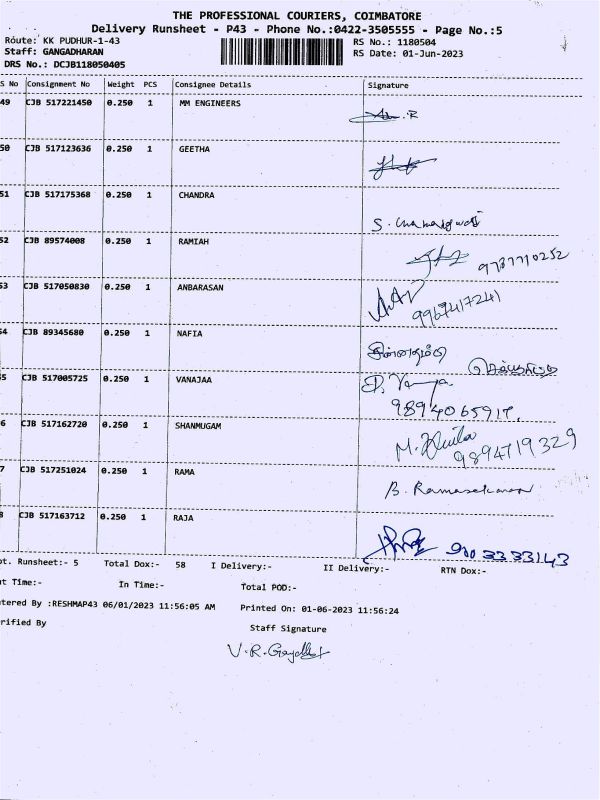 THE PROFESSIONAL COURIERS, COIMBATORE
Delivery Runsheet - P43 - Phone No.:0422-3505555 - Page No.:5
Route: KK PUDHUR-1-43
RS No.: 1180504
Staff: GANGADHARAN
RS Date: 01-Jun-2023
DRS No.: DCJB118050405
S No Consignment No Weight PCS Consignee Details Signature
49 CJB 517221450 0.250 1 MM ENGINEERS
50 CJB 517123636 0.250 1 GEETHA
51 CJB 517175368 0.250 1 CHANDRA
S.
52 CJB 89574008 0.250 1 RAMIAH
9787710252
53 CJB 517050830 0.250 1 ANBARASAN
9967417241
54 CJB 89345680 0.250 1 NAFIA
55 CJB 517005725 0.250 1 VANAJAA
9894065917.
6 CJB 517162720 0.250 1 SHANMUGAM
M. 9894719329
7 CJB 517251024 0.250 1 RAMA
B.
8 CJB 517163712 0.250 1 RAJA
9003333143
ot. Runsheet:- 5 Total Dox:- 58 I Delivery:- II Delivery:- RTN Dox:-
ut Time:- In Time:- Total POD:-
tered By :RESHMAP43 06/01/2023 11:56:05 AM Printed On: 01-06-2023 11:56:24
rified By Staff Signature
V.R.